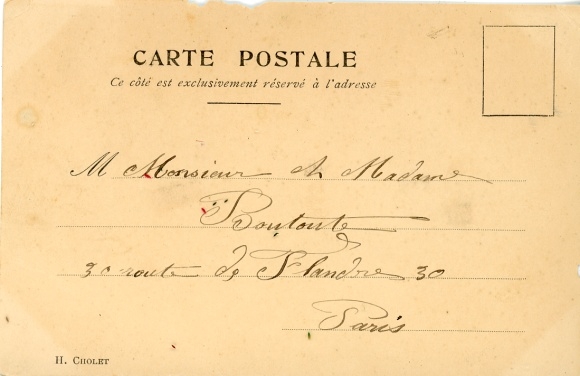 CARTE POSTALE
Ce côté est exclusivement réservé à l'adresse
M Monsieur et Madame
Boutonté
30 route de Flandre 30
Paris
H. CHOLET